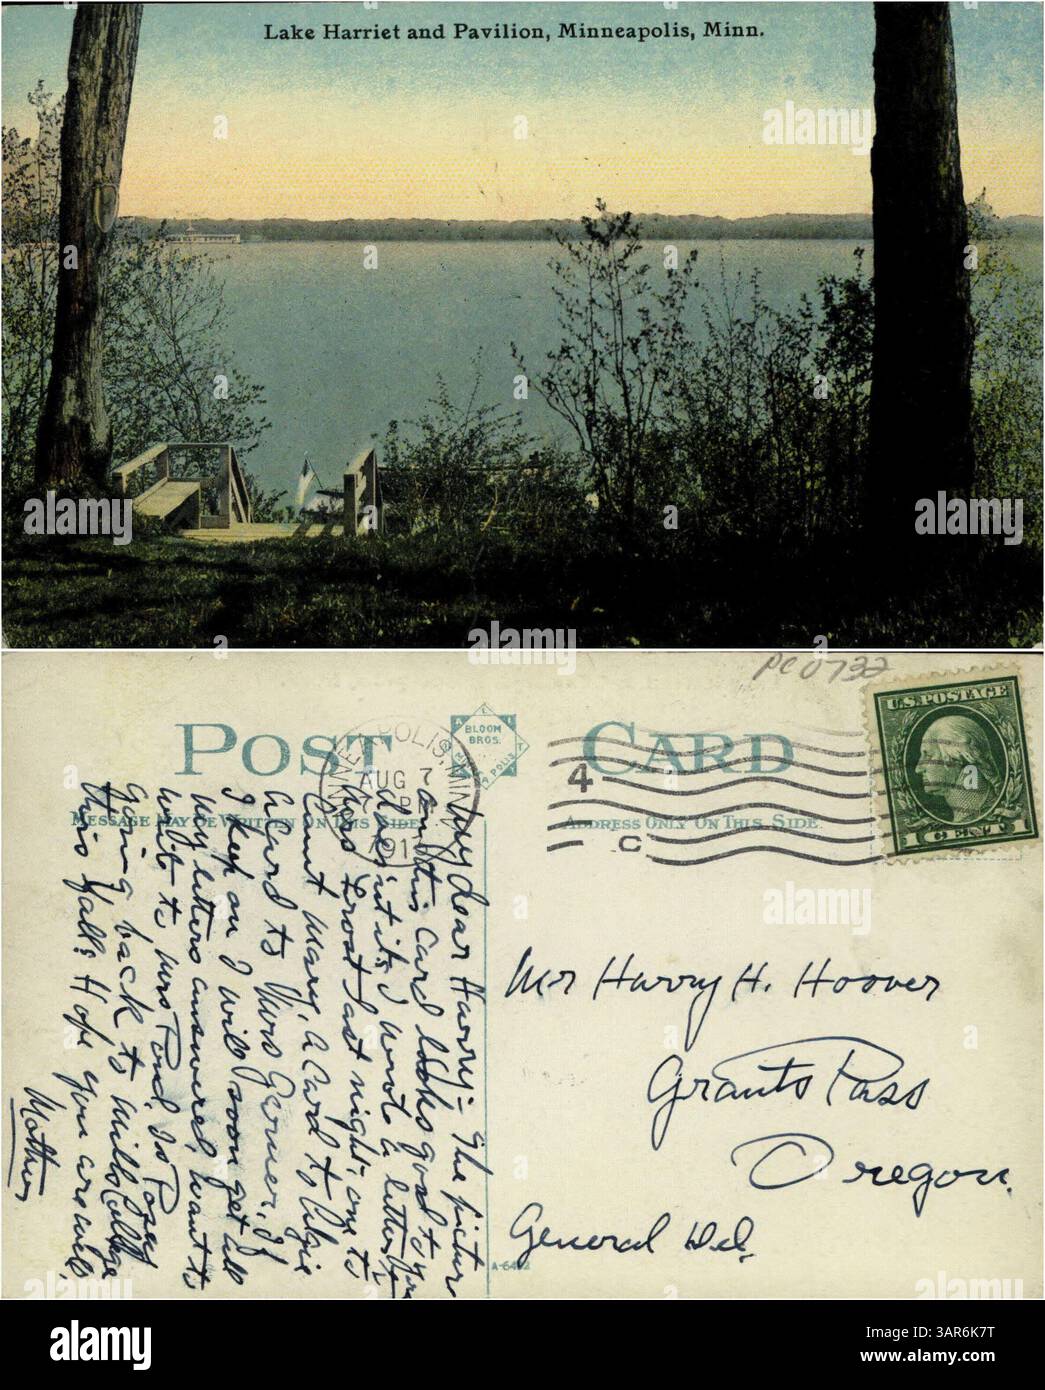 Lake Harriet and Pavilion, Minneapolis, Minn.
PC0732
U.S. POSTAGE
1 CENT 1
POST CARD
BLOOM BROS.
MINNEAPOLIS
MINNEAPOLIS, MINN.
AUG 7
4
C
MESSAGE MAY BE WRITTEN ON THIS SIDE
ADDRESS ONLY ON THIS SIDE.
My dear Harry:- The picture
on this card looks good to you
doesn't it, I wrote a letter to
Mrs Frost last night, one to
Aunt Mary, a Card to Algie
a Card to Mrs Gerner, If
I keep on I will soon get all
my letters answered, want to
write to Mrs Pond. Is Pond
going back to Mills College
this fall. Hope you are well,
Mother
Mr Harry H. Hoover
Grants Pass
Oregon.
General Del.
a
alamy
alamy
Image ID: 3AR6K7T
www.alamy.com